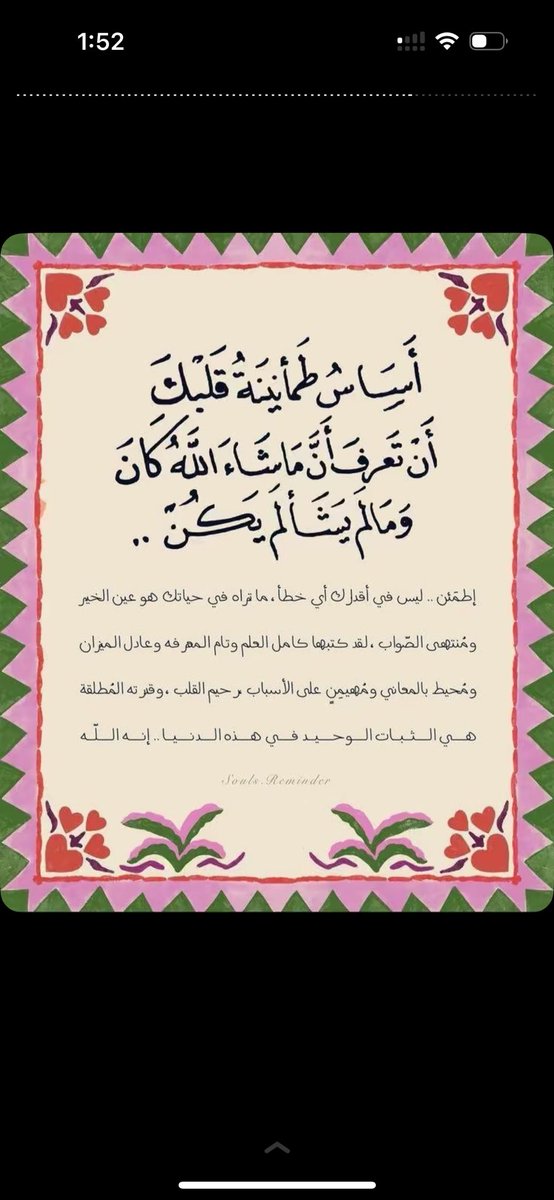 1:52
أَسَاسُ طَمأنِينَةُ قَلْبْكَ
أَنْ تَعرِفَ أَنَّ مَا شَاءَ اللَّهُ كَانَ
وَمَا لَم يَشَأ لَم يَكُنْ ..
إطمَئن .. ليس في أقدارك أي خطأ ، ما تراه في حياتك هو عين الخير
ومُنتهى الصّواب ، لقد كتبها كامل العلم وتام المعرفه وعادل الميزان
ومُحيط بالمعاني ومُهيمِنٍ على الأسباب رحيم القلب ، وقدرته المُطلقة
هي الثبات الوحيد في هذه الدنيا .. إنه اللّه
Souls.Reminder